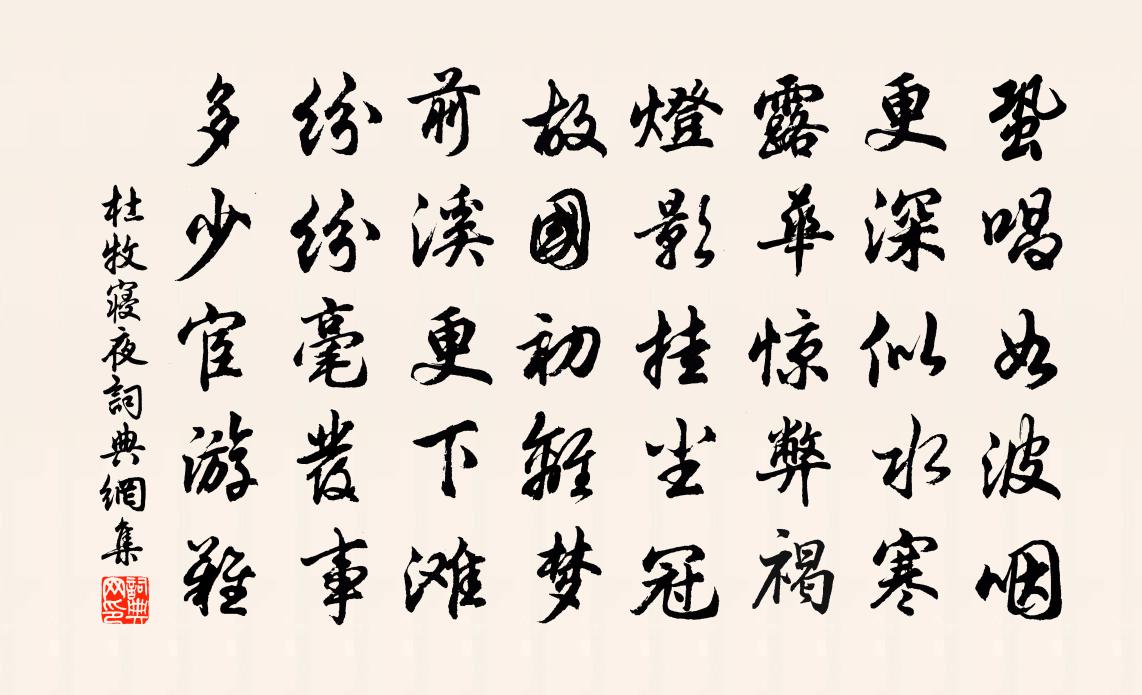 蛩唱如波咽
更深似水寒
露華惊弊褐
燈影挂尘冠
故國初離梦
前溪更下滩
纷纷毫發事
多少宦游難
杜牧寝夜詞典網集
詞典网印